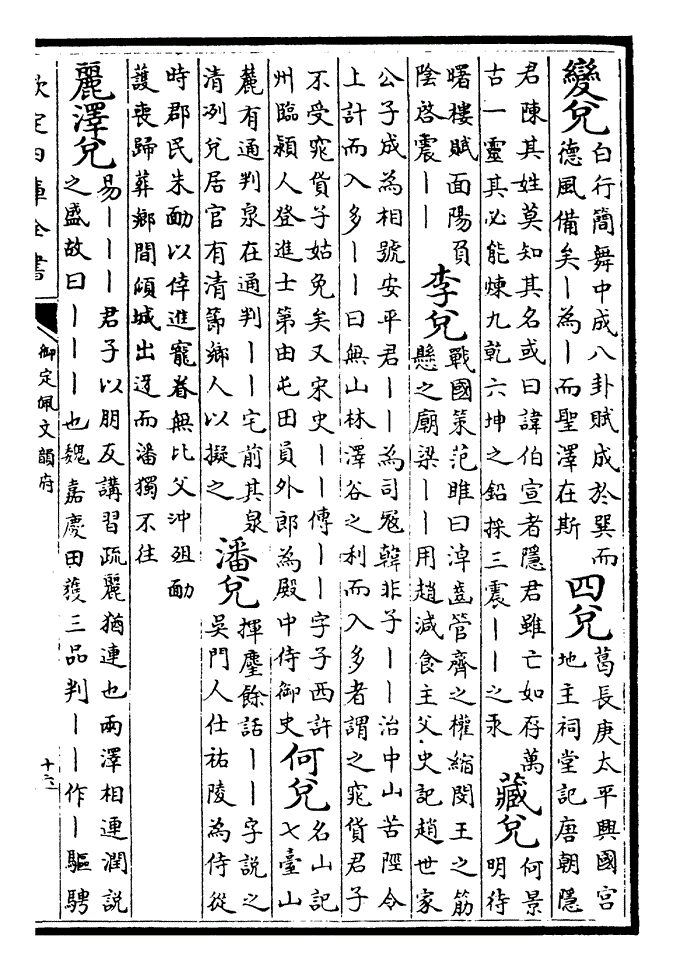 變兌
白行簡舞中成八卦賦成於巽而
德風備矣丨為丨而聖澤在斯
四兌
葛長庚太平興國宮
地主祠堂記唐朝隱
君陳其姓莫知其名或曰諱伯宣者隱君雖亡如存萬
古一靈其必能煉九乾六坤之鉛採三震丨丨之汞
藏兌
何景
明待
曙樓賦面陽負
陰啓震丨丨
李兌
戰國策范雎曰淖齒管齊之權縮閔王之筋
懸之廟梁丨丨用趙減食主父史記趙世家
公子成為相號安平君丨丨為司冦韓非子丨丨治中山苦陘令
上計而入多丨丨曰無山林澤谷之利而入多者謂之窕貨君子
不受窕貨子姑免矣又宋史丨丨傳丨丨字子西許
州臨潁人登進士第由屯田員外郎為殿中侍御史
何兌
名山記
七臺山
麓有通判泉在通判丨丨宅前其泉
清冽兌居官有清節鄉人以擬之
潘兌
揮麈餘話丨丨字說之
吳門人仕祐陵為侍從
時郡民朱勔以倖進寵眷無比父沖殂勔
護喪歸葬鄉閭傾城出迓而潘獨不往
麗澤兌
易丨丨丨君子以朋友講習疏麗猶連也兩澤相連潤說
之盛故曰丨丨丨也魏嘉慶田獲三品判丨丨作丨驅騁
欽定四庫全書
御定佩文韻府
十六